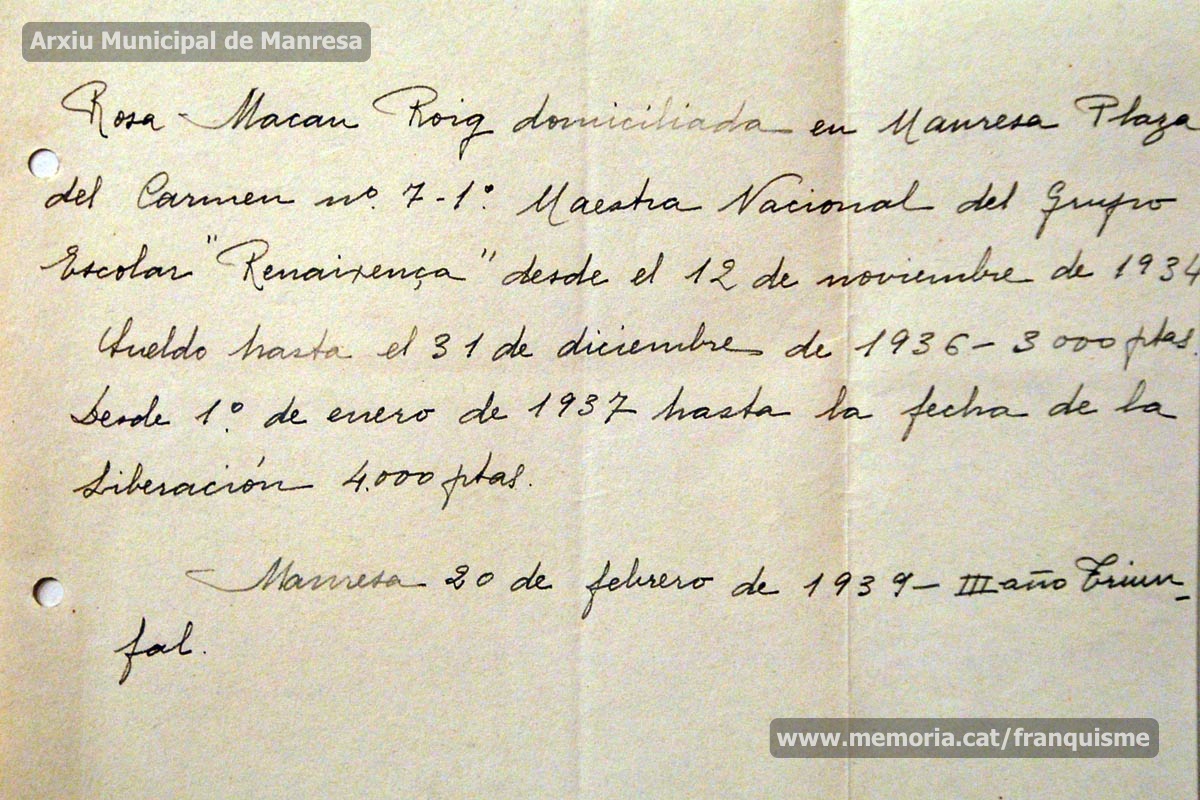 Arxiu Municipal de Manresa
Rosa Macau Roig domiciliada en Manresa Plaza
del Carmen nº. 7-1º. Maestra Nacional del Grupo
Escolar "Renaixença" desde el 12 de noviembre de 1934
Sueldo hasta el 31 de diciembre de 1936 - 3000 ptas.
Desde 1º. de enero de 1937 hasta la fecha de la
Liberación 4.000 ptas.
Manresa 20 de febrero de 1939 - III año Triun-
fal.
www.memoria.cat/franquisme